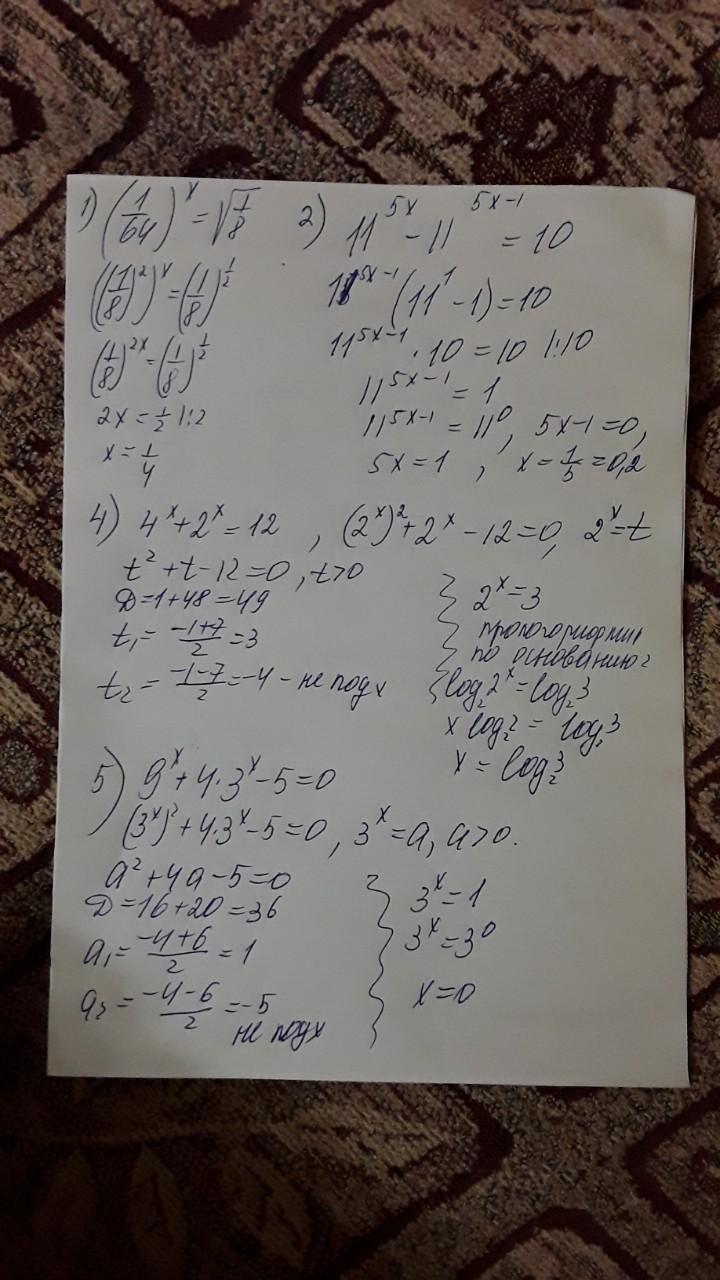 1) (1/64)^x = √(1/8)
((1/8)^2)^x = (1/8)^(1/2)
(1/8)^(2x) = (1/8)^(1/2)
2x = 1/2 |:2
x = 1/4
2) 11^(5x) - 11^(5x-1) = 10
11^(5x-1) (11^1 - 1) = 10
11^(5x-1) · 10 = 10 |:10
11^(5x-1) = 1
11^(5x-1) = 11^0, 5x-1=0,
5x=1, x = 1/5 = 0,2
4) 4^x + 2^x = 12, (2^x)^2 + 2^x - 12 = 0, 2^x = t
t^2 + t - 12 = 0, t>0
D = 1+48 = 49
t₁ = (-1+7)/2 = 3
t₂ = (-1-7)/2 = -4 - не подх
2^x = 3
по основанию 2
log₂ 2^x = log₂ 3
x log₂ 2 = log₂ 3
x = log₂ 3
5) 9^x + 4·3^x - 5 = 0
(3^x)^2 + 4·3^x - 5 = 0, 3^x = a, a>0.
a^2 + 4a - 5 = 0
D = 16+20 = 36
a₁ = (-4+6)/2 = 1
a₂ = (-4-6)/2 = -5
не подх
3^x = 1
3^x = 3^0
x = 0